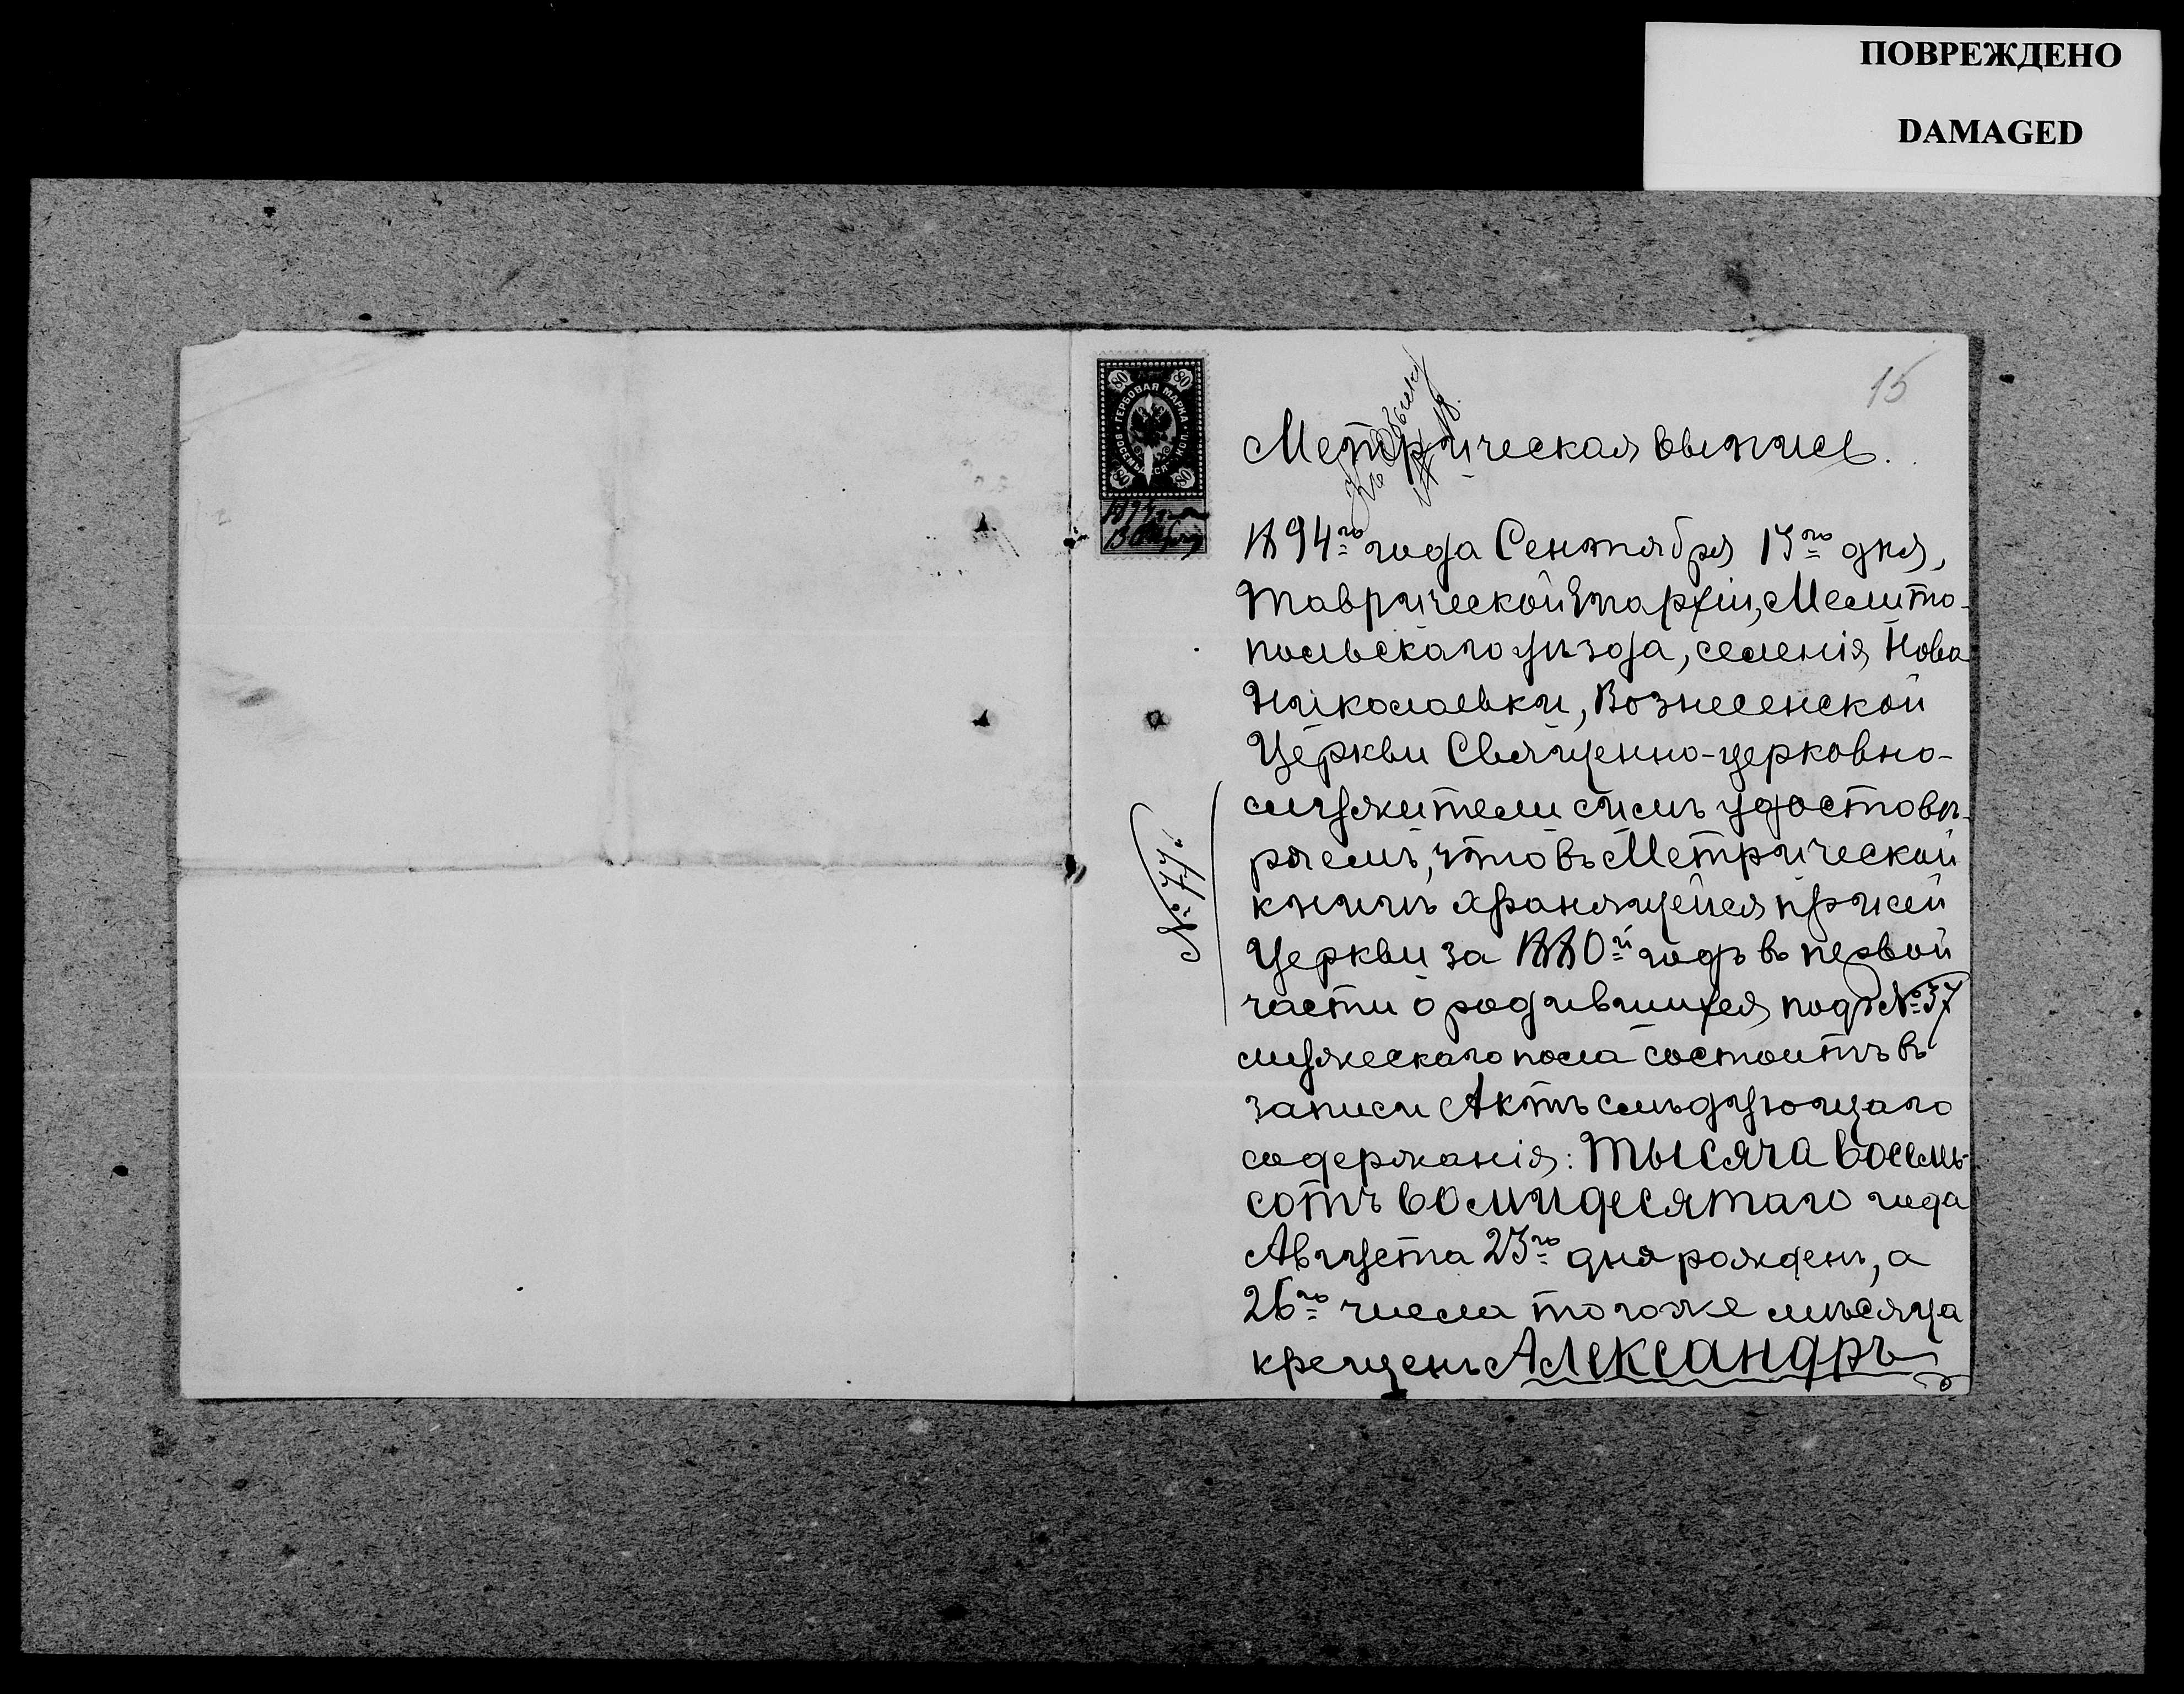 ПОВРЕЖДЕНО
DAMAGED
15
80 80
ГЕРБОВАЯ МАРКА
ВОСЕМЬДЕСЯТЪ КОП.
80 80
Метрическая выпись.
1894го года Сентября 13го дня,
Таврической Епархіи, Мелито-
польскаго уѣзда, селенія Ново
Николаевки, Вознесенской
Церкви Священно-церковно-
служители симъ удостовѣ-
ряемъ, что въ Метрической
книгѣ хранящейся при сей
Церкви за 1880й годъ въ первой
части о родившихся подъ № 37
мужескаго пола состоитъ въ
записи Актъ слѣдующаго
содержанія: Тысяча восемь-
сотъ восмидесятаго года
Августа 23го дня рожденъ, а
26го числа того же мѣсяца
крещенъ Александръ
№ 77.